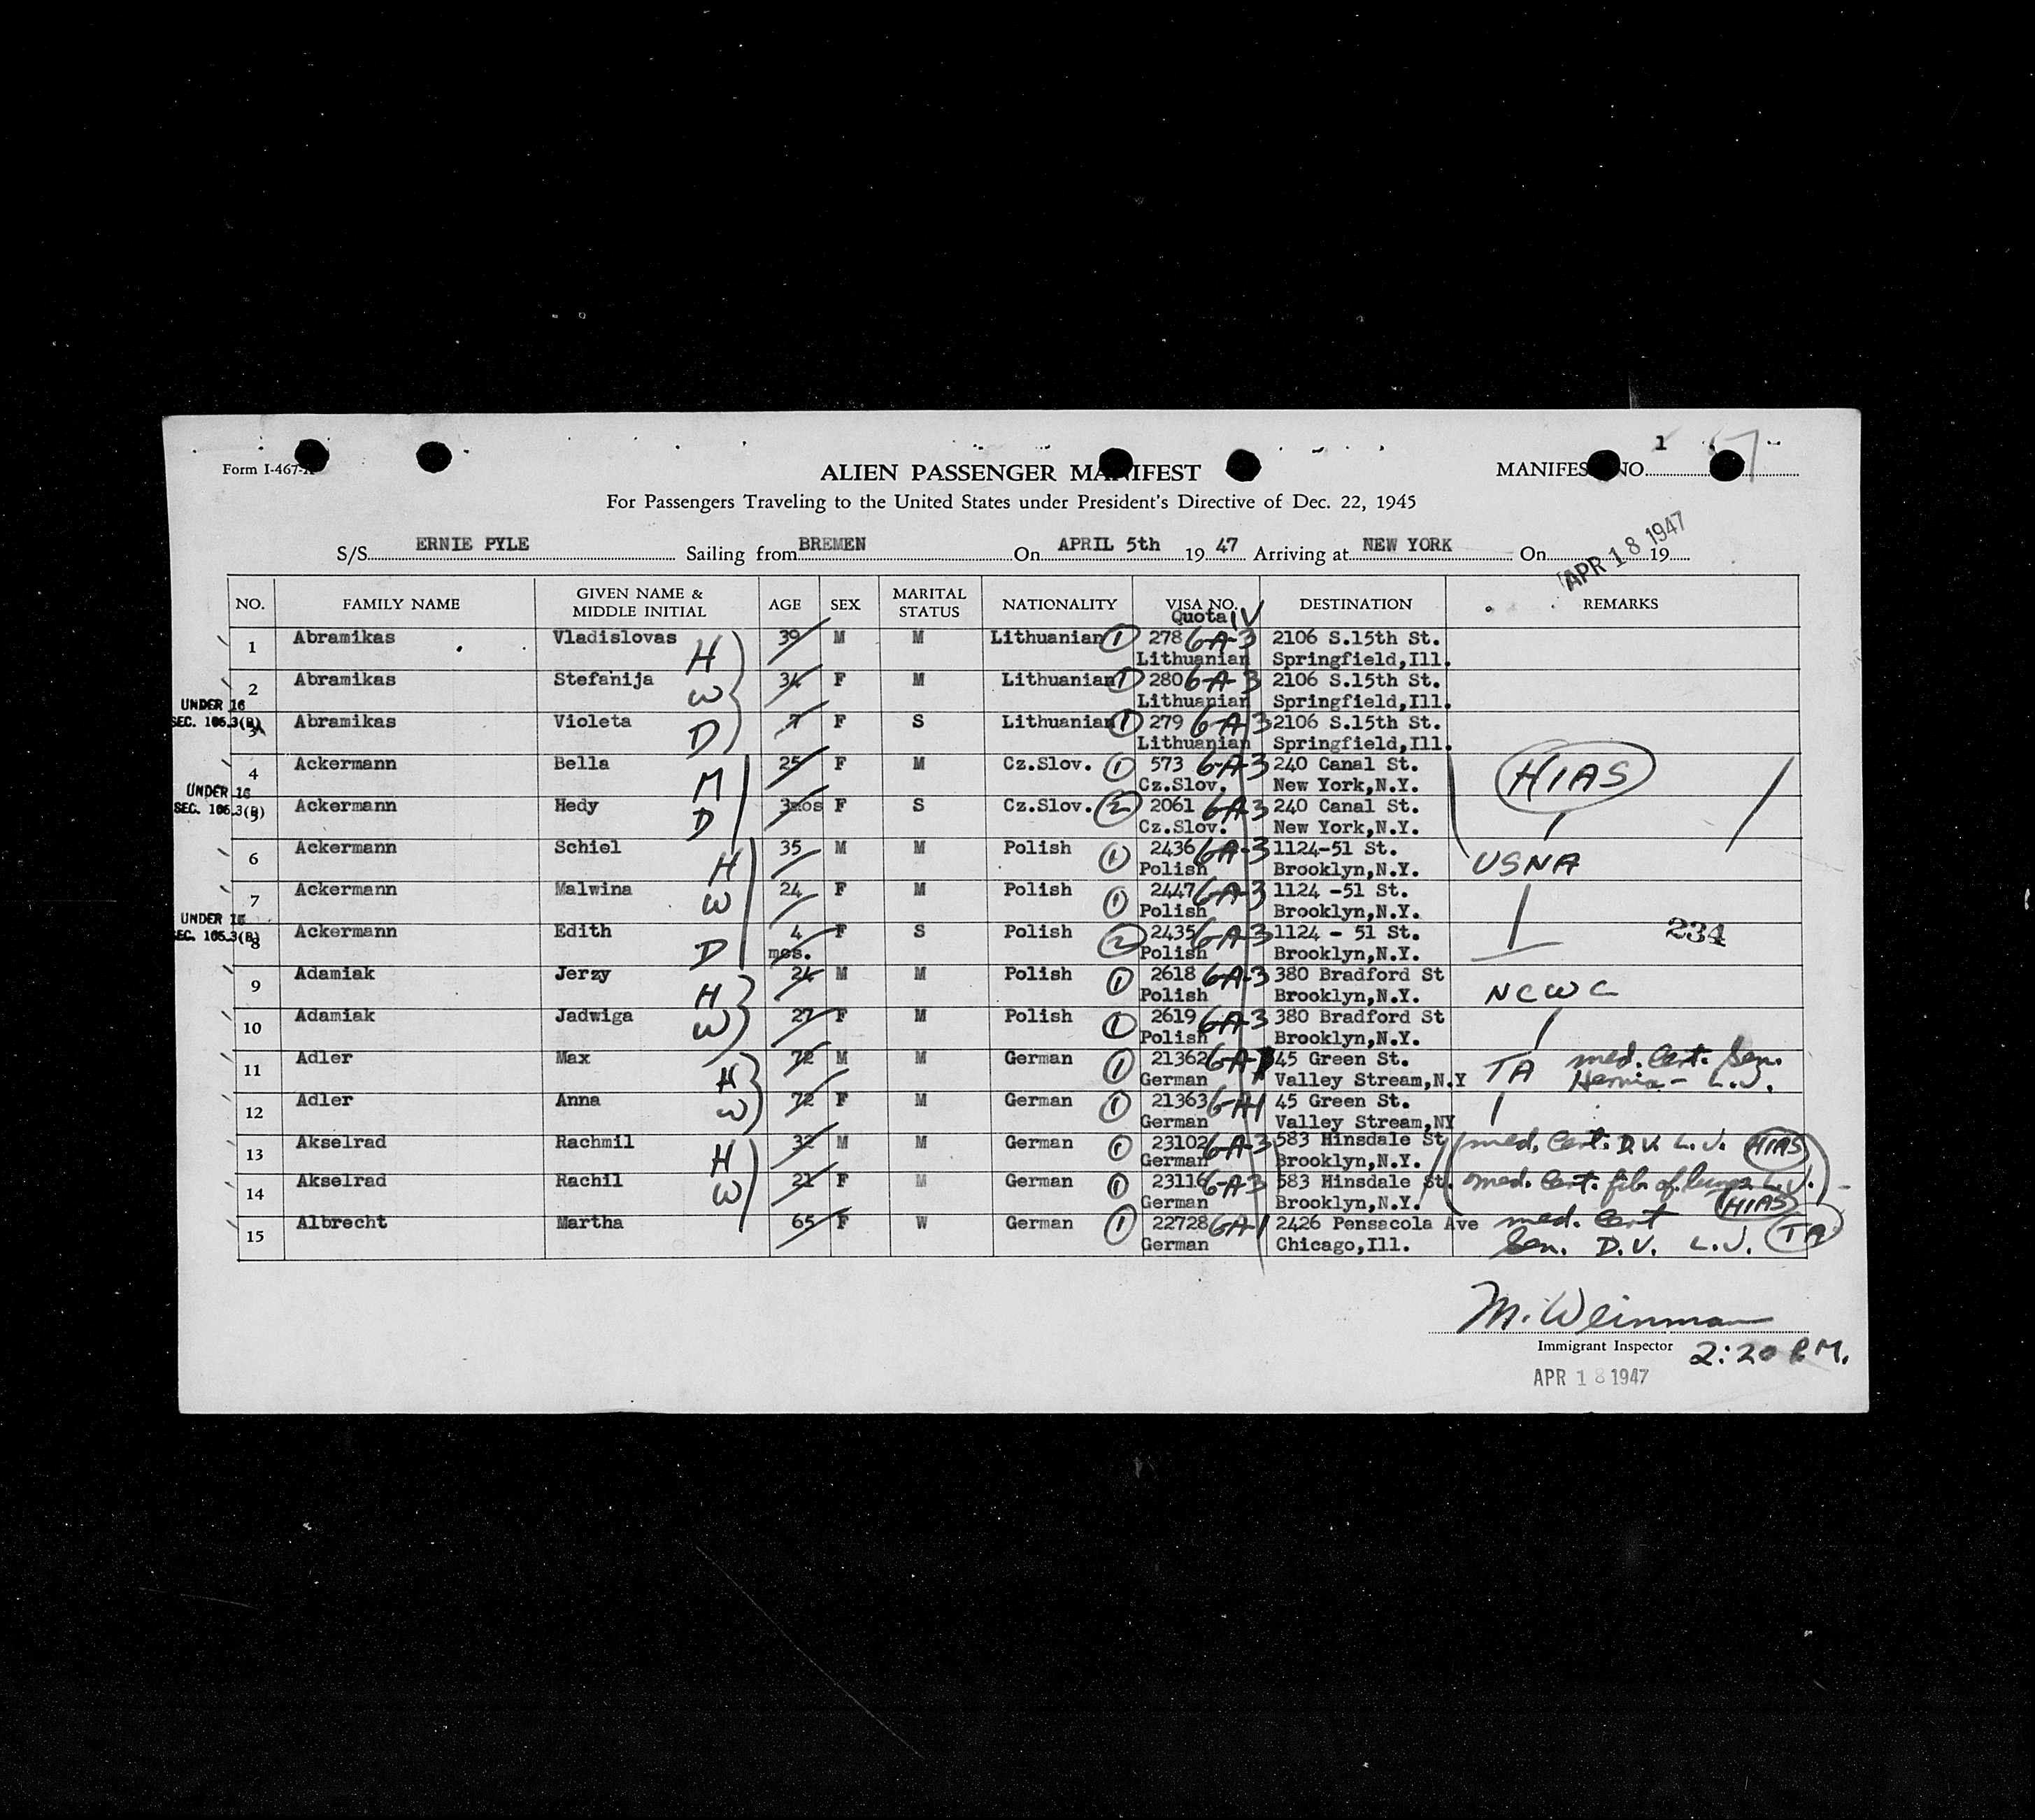 1
Form I-467-A
ALIEN PASSENGER MANIFEST
MANIFEST NO.
For Passengers Traveling to the United States under President's Directive of Dec. 22, 1945
S/S ERNIE PYLE Sailing from BREMEN On APRIL 5th 19 47 Arriving at NEW YORK On APR 18 1947 19
NO. FAMILY NAME GIVEN NAME & MIDDLE INITIAL AGE SEX MARITAL STATUS NATIONALITY VISA NO. Quota IV DESTINATION REMARKS
1 Abramikas Vladislovas H 39 M M Lithuanian 1 278 6-A-3 2106 S.15th St.
Lithuanian Springfield,Ill.
2 Abramikas Stefanija W 34 F M Lithuanian 1 280 6-A-3 2106 S.15th St.
Lithuanian Springfield,Ill.
UNDER 16
SEC. 105.3(B) 3 Abramikas Violeta D 7 F S Lithuanian 1 279 6-A-3 2106 S.15th St.
Lithuanian Springfield,Ill.
4 Ackermann Bella M 25 F M Cz.Slov. 1 573 6-A-3 240 Canal St. HIAS
Cz.Slov. New York,N.Y.
UNDER 16
SEC. 105.3(B) 5 Ackermann Hedy D 3mos F S Cz.Slov. 2 2061 6-A-3 240 Canal St.
Cz.Slov. New York,N.Y.
6 Ackermann Schiel H 35 M M Polish 1 2436 6A-3 1124-51 St. USNA
Polish Brooklyn,N.Y.
7 Ackermann Malwina W 24 F M Polish 1 2447 6-A-3 1124 -51 St.
Polish Brooklyn,N.Y.
UNDER 16
SEC. 105.3(B) 8 Ackermann Edith D 4 F S Polish 2 2435 6-A-3 1124 - 51 St. 234
mos. Polish Brooklyn,N.Y.
9 Adamiak Jerzy H 24 M M Polish 1 2618 6A-3 380 Bradford St
Polish Brooklyn,N.Y. NCWC
10 Adamiak Jadwiga W 27 F M Polish 1 2619 6-A-3 380 Bradford St
Polish Brooklyn,N.Y.
11 Adler Max H 72 M M German 1 21362 6-A-1 45 Green St. TA med. Cert. Sen.
German Valley Stream,N.Y Hernia - L.J.
12 Adler Anna W 72 F M German 1 21363 6-A-1 45 Green St.
German Valley Stream,NY
13 Akselrad Rachmil H 32 M M German 1 23102 6-A-3 583 Hinsdale St med. Cert. D.V. L.J. HIAS
German Brooklyn,N.Y.
14 Akselrad Rachil W 21 F M German 1 23116 6-A-3 583 Hinsdale St. med. Cert. fib. of lungs L.J.
German Brooklyn,N.Y. HIAS
15 Albrecht Martha 65 F W German 1 22728 6A-1 2426 Pensacola Ave med. Cert
German Chicago,Ill. Sen. D.V. L.J. TA
M. Weinman
Immigrant Inspector 2:20 P.M.
APR 18 1947